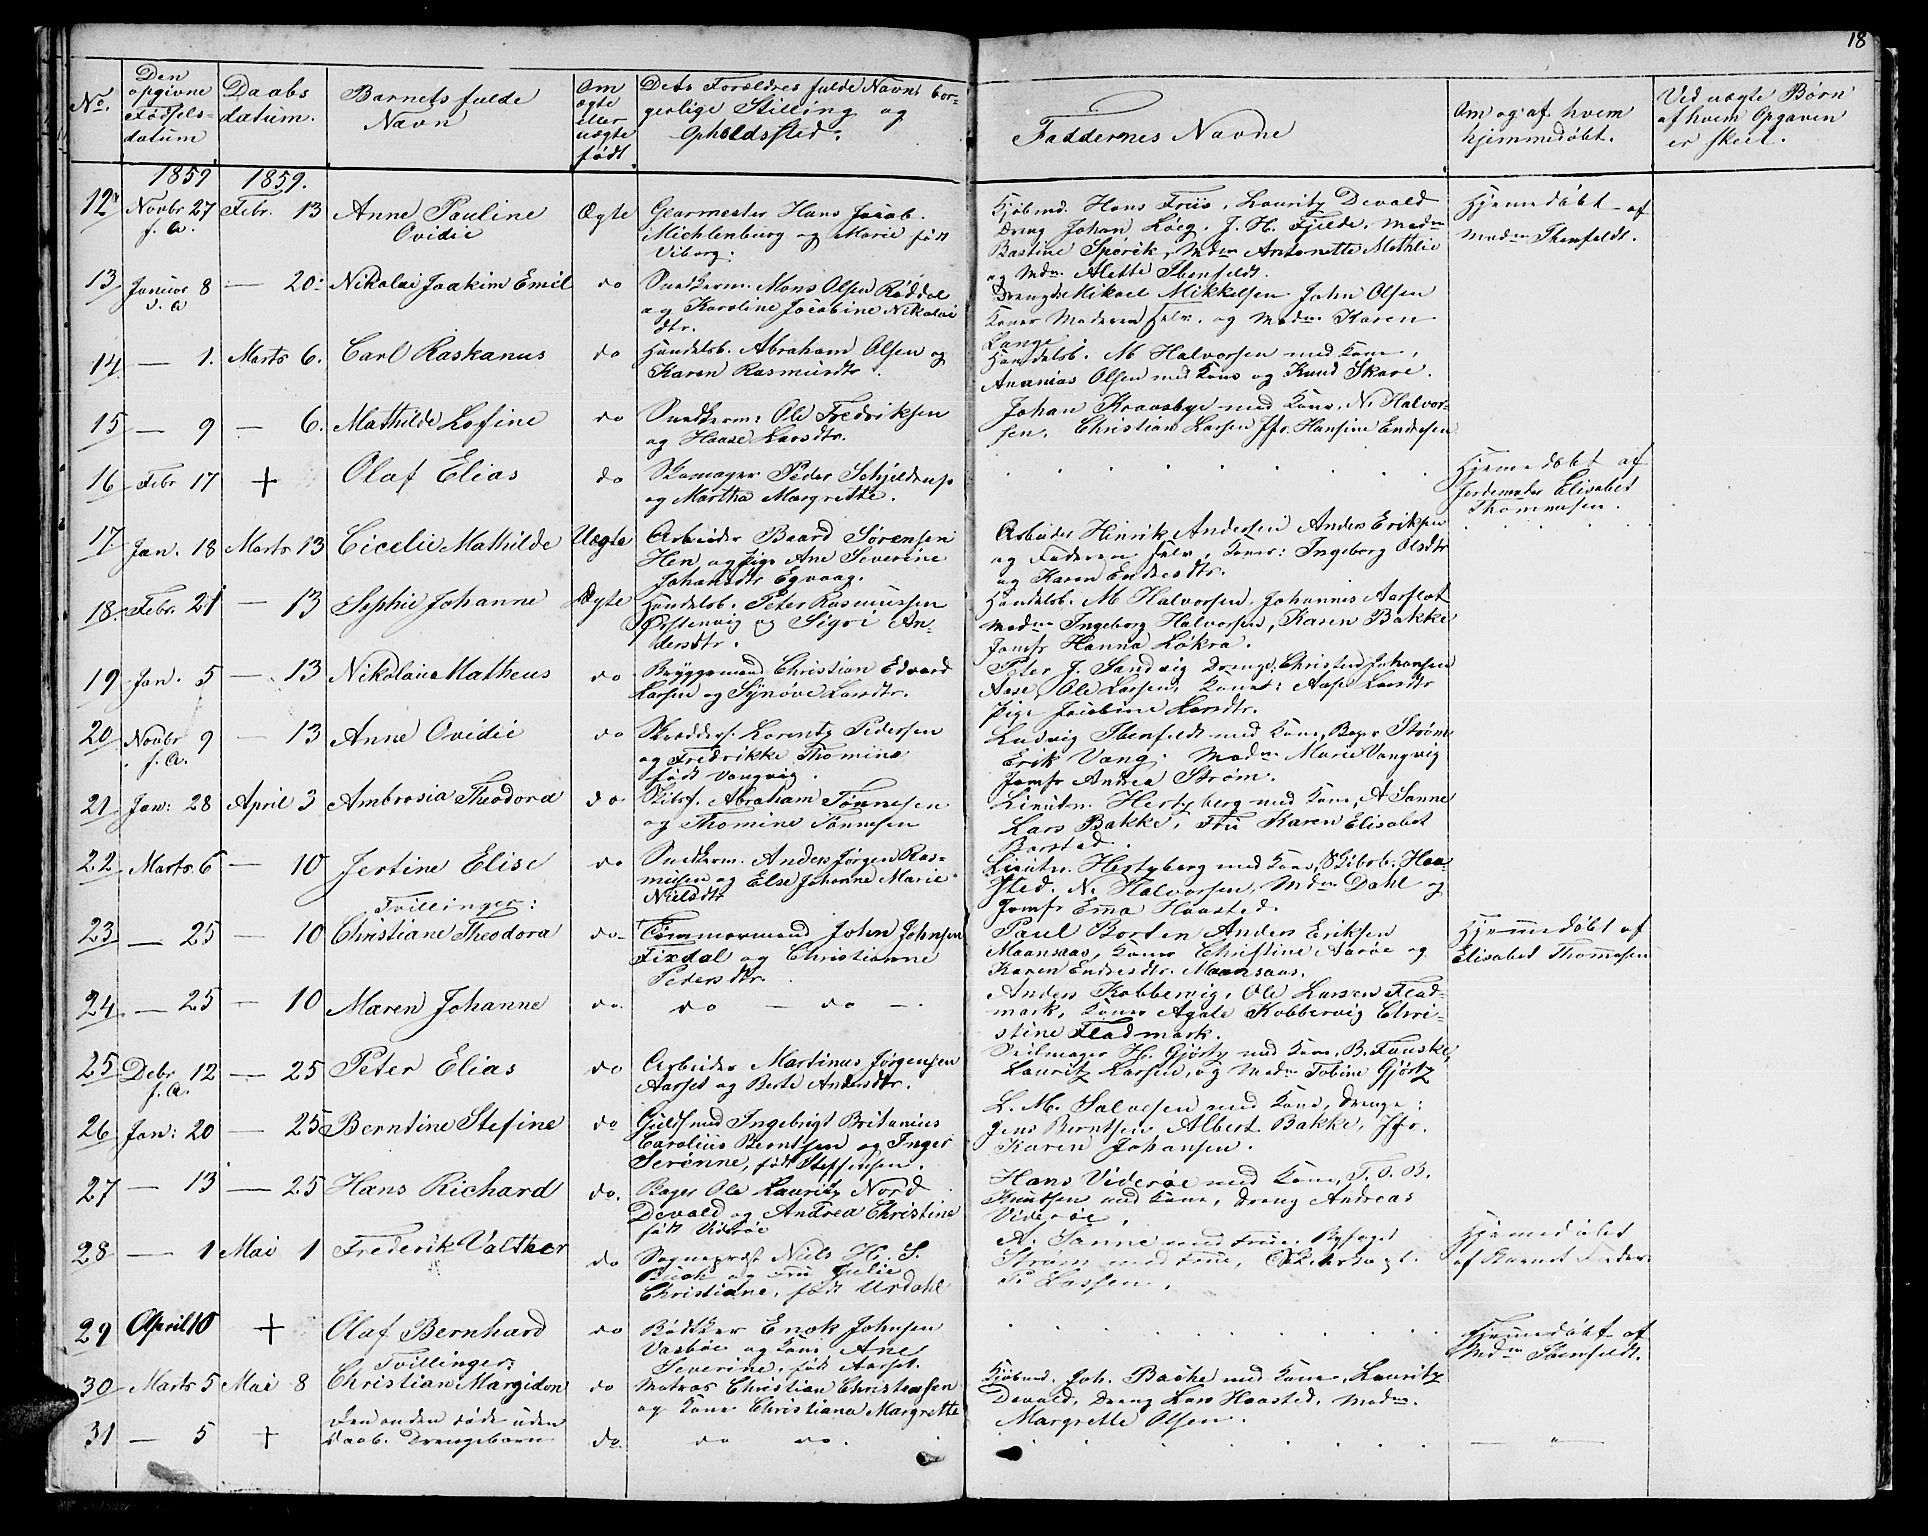 18
No.
Den opgivne Fødsels-datum
Daabs datum.
Barnets fulde Navn
Om ægte eller uægte født.
Dets Forældres fulde Navne borgerlige Stilling og Opholdssted.
Faddernes Navne
Om og af hvem hjemmedøbt.
Ved uægte Børn af hvem Opgaven er skeet.
1859 1859.
12 Novbr 27 f. A. Febr. 13 Anne Pauline Ovidie Ægte Gearmester Hans Jacob Michlenburg og Marie født Viborg.
Kjøbmd. Hans Friis, Lauritz Devald Dreng Johan Løeg, J. H. Fjelde, Madm Bastine Spørck, Mdm Antonette Mathlie og Mdm. Alette Ibenfeldt.
Hjemedøbt af Madm Ibenfeldt.
13 Januar 8 d. A — 20 Nikolai Joakim Emil do Snedkerm. Mons Olsen Røddal og Karoline Jacobine Nikolai dtr.
Drengde Mikael Mikkelsen John Olsen Koner Moderen selv. og Madm. Karen Lange
14 — 1. Marts 6. Carl Raskanus do Handelsb. Abraham Olsen og Karen Rasmusdtr.
Handelsb. M Halvorsen med Kone, Ananias Olsen med Kone og Knud Skare.
15 — 9 — 6. Mathilde Lofine do Snedkerm: Ole Fredriksen og Haase Larsdtr.
Johan Kraasbye med Kone, N. Halvorsen. Christian Larsen Jfr. Hansine Endresen
16 Febr 17 + Olaf Elias do Skomager Peder Schjeldrup og Martha Margrethe.
Hjemedøbt af Jordemoder Elisabet Thommesen.
17 Jan. 18 Marts 13 Cicelie Mathilde Uægte Arbeider Baard Sørensen Hen og Pige Ane Severine Johansdtr Egvaag.
Arbeider Hinrik Andersen Anders Eriksen og Faderen selv, Koner: Ingeborg Olsdtr og Karen Endresdtr.
18. Febr. 21 — 13 Sophie Johanne Ægte Handelsb. Peter Rasmussen Østenvig og Sigri Andersdtr.
Handelsb. M Halvorsen. Johannes Aarflot Madm Ingeborg Halvorsen, Karen Bakke Jomfr Hanna Løkra.
19 Jan. 5 — 13 Nikolai Matheus do Bryggemand Christian Edvard Larsen og Synøve Larsdtr.
Peter J. Sandvig Drenge. Christen Johansen Aase, Ole Larsen, Koner: Aase Larsdtr Pige Jacobine Larsdtr.
20 Novbr 9 f. A. — 13 Anne Ovidie do Skrædders. Lorentz Pedersen og Fredrikke Thomine født Vangvig.
Ludvig Ibenfeldt med Kone, Bager Strøm Erik Vang. Madm Marie Vangvig Jomfr Andrea Strøm.
21 Jan: 28 April 3 Ambrosia Theodora do Abraham Tønnesen og Thomine Tønnesen
Lieutn. Hertzberg med Kone, A Sanne Lars Bakke, Fru Karen Elisabet Barstad.
22 Marts 6 — 10 Jertine Elise do Snedkerm. Anders Jørgen Rasmusen og Else Johanne Marie Nielsdtr
Lieutn. Hertzberg med Kone, Skibsb. Haasted. N. Halvorsen, Mdm Dahl og Jomfr Emma Haasted.
Tvillinger:
23 — 25 — 10 Christiane Theodora do Tømmermand John Johnsen Fixdal og Christianne Pedersdtr.
Paul Borten Anders Eriksen Maansaas, Koner Christine Aarøe og Karen Endresdtr. Maansaas.
Hjemmedøbt af Elisabet Thommesen
24 — 25 — 10 Maren Johanne do. do — do —
Anders Kobbervig, Ole Larsen Fladmark, Koner Agate Kobbervig Christine Fladmark.
25 Debr 12 f. A. — 25 Peter Elias do Arbeider Martinus Jørgensen Aarset og Berte Andersdtr.
Seilmager H. Gjørtz med Kone, B. Fauske, Lauritz Larsen, og Madm Tobine Gjørtz
26 Jan: 20 — 25 Berntine Stefine do Guldsmed Ingebrigt Britanius Carolius Berntsen og Inger Serenne, født Steffensen.
L. M. Salvesen med Kone, Drenge: Jens Berntsen Albert Bakke, Jfr. Karen Johansen.
27 — 13 — 25 Hans Richard do. Bager Ole Lauritz Nord Devald og Andrea Christine født Viderøe
Hans Viderøe med Kone, T. O. B. Knutsen med Kone, Dreng Andreas Viderøe.
28 — 1 Mai 1 Frederik Valther do Sognepræst Niels H. S. og Fru Julie Christiane, født Urdahl
A. Sanne med Frue, Byfoged Strøm med Frue, P. Lassen.
Hjemedøbt af Barnets Fader.
29 April 10 + Olaf Bernhard do Bødker Enok Johnsen Vasbøe og Kone Ane Severine, født Aarset.
Hjemmedøbt af Mdm Ibenfeldt.
Tvillinger:
30 Marts 5 Mai 8 Christian Margidon do Matros Christian Christensen og Kone Christiana Margrethe
Kjøbmd. Joh. Backe med Kone, Lauritz Devald, Dreng Lars Haasted, Madm. Margrette Olsen.
31 — 5 + Den anden døde uden Daab. Drengebarn do. do do. — „ —